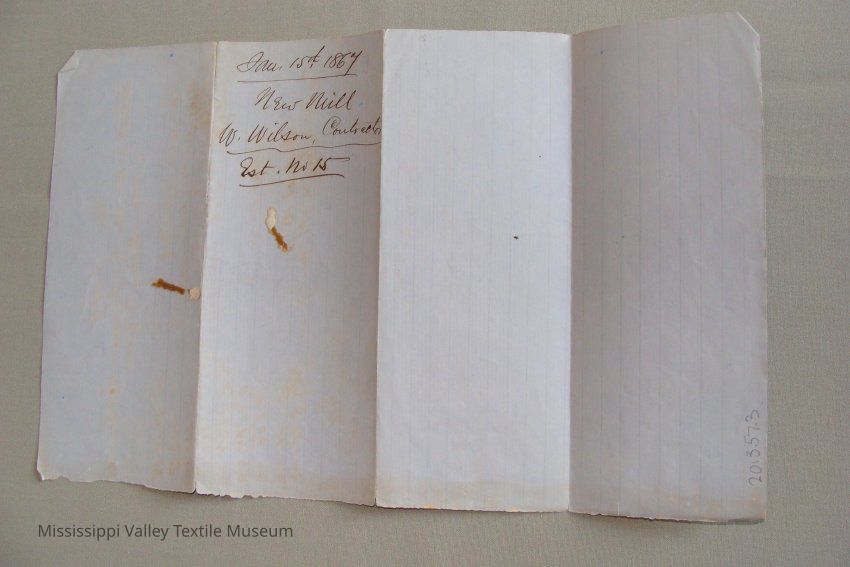 Jan. 15th 1867
New Mill
W. Wilson, Contractor
Est. No 15
20.3.57.3
Mississippi Valley Textile Museum